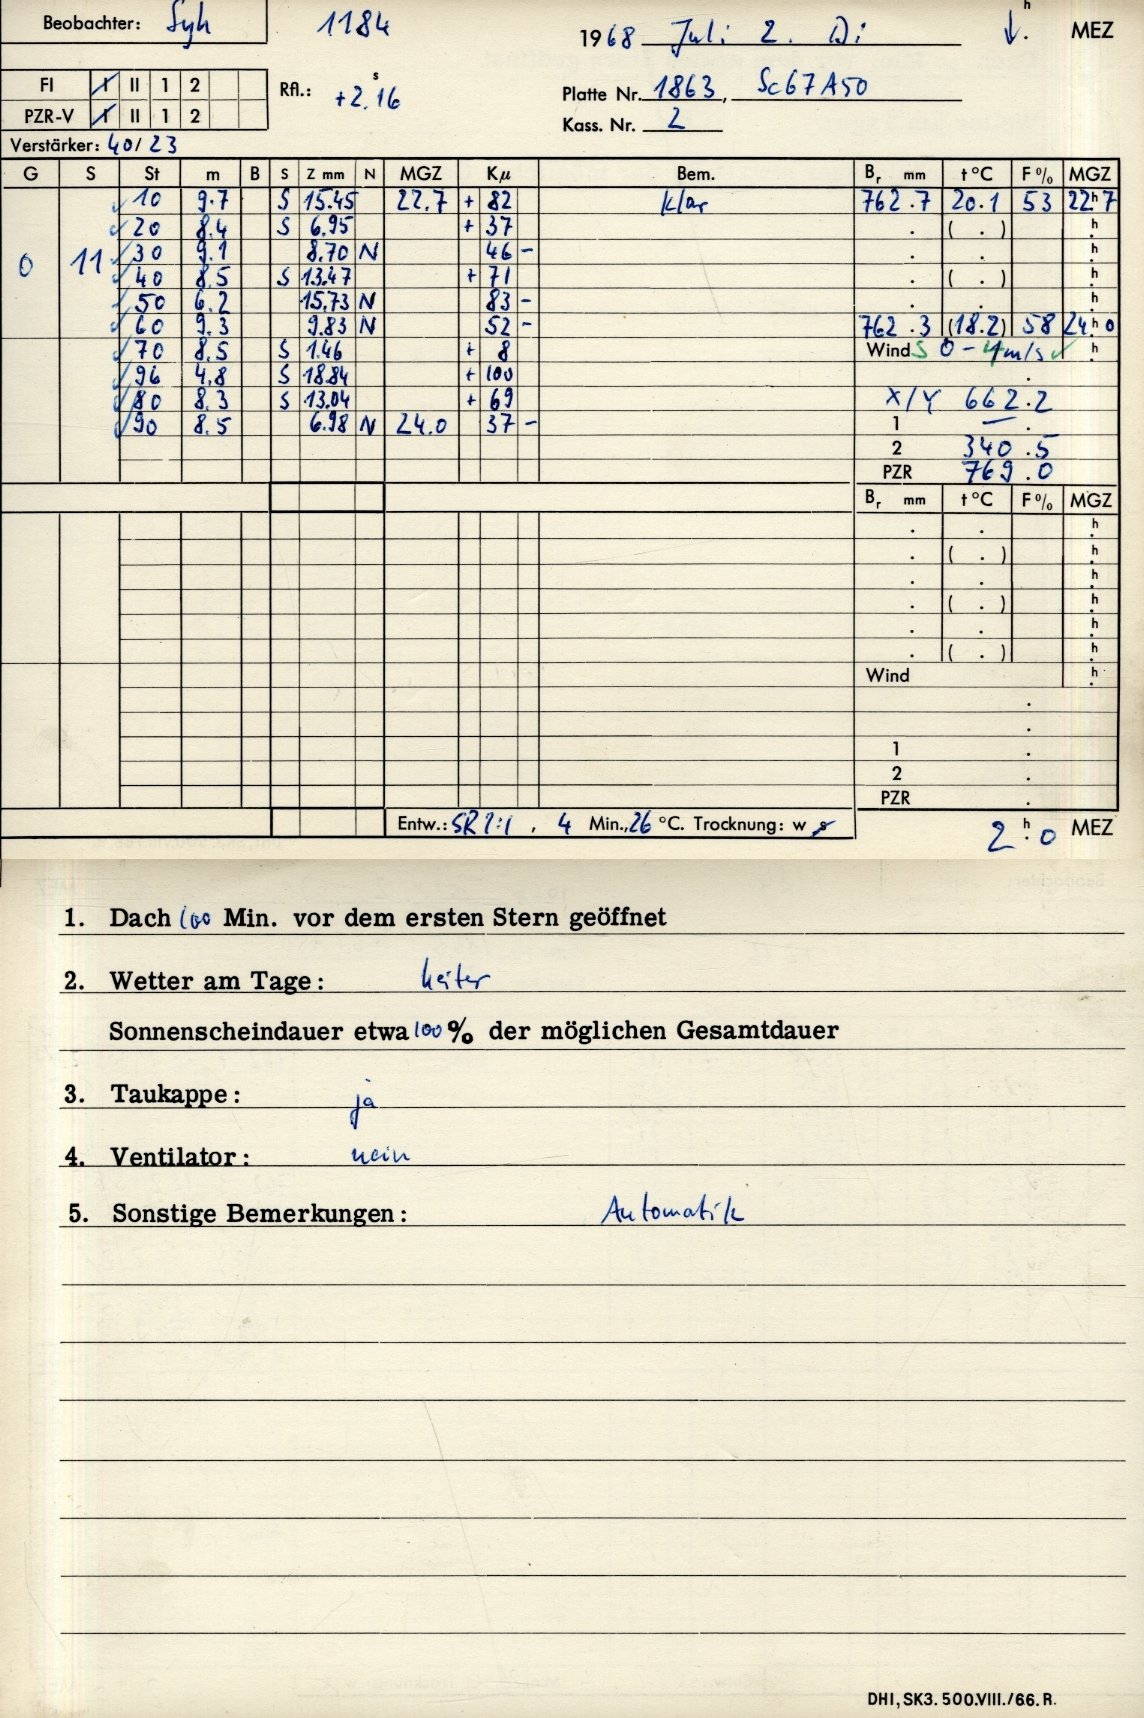 Beobachter: Syh 1184 1968 Juli 2. Di h . MEZ
FI I II 1 2 Rfl.: +2.16 s Platte Nr. 1863, Sc67A50
PZR-V I II 1 2 Kass. Nr. 2
Verstärker: 40/23
G S St m B S Z mm N MGZ Kμ Bem. Br mm t °C F % MGZ
10 9.7 S 15.45 22.7 + 82 klar 762.7 20.1 53 22h7
20 8.4 S 6.95 + 37 . ( . ) h.
0 11 30 9.1 8.70 N 46 - . . h.
40 8.5 S 13.47 + 71 . ( . ) h.
50 6.2 15.73 N 83 - . . h.
60 9.3 9.83 N 52 - 762.3 (18.2) 58 24h0
70 8.5 S 1.46 + 8 Wind S 0-4m/s h.
96 4.8 S 18.84 + 100 .
80 8.3 S 13.04 + 69 X/Y 662.2
90 8.5 6.98 N 24.0 37 - 1 — .
2 340.5
PZR 769.0
Br mm t °C F % MGZ
. . h.
. ( . ) h.
. . h.
. ( . ) h.
. . h.
. ( . ) h.
Wind h.
.
.
1 .
2 .
PZR .
Entw.: SR 1:1, 4 Min., 26 °C. Trocknung: w s 2h.0 MEZ
1. Dach 100 Min. vor dem ersten Stern geöffnet
2. Wetter am Tage: heiter
Sonnenscheindauer etwa 100 % der möglichen Gesamtdauer
3. Taukappe: ja
4. Ventilator: nein
5. Sonstige Bemerkungen: Automatik
DHI, SK3. 500.VIII./66. R.